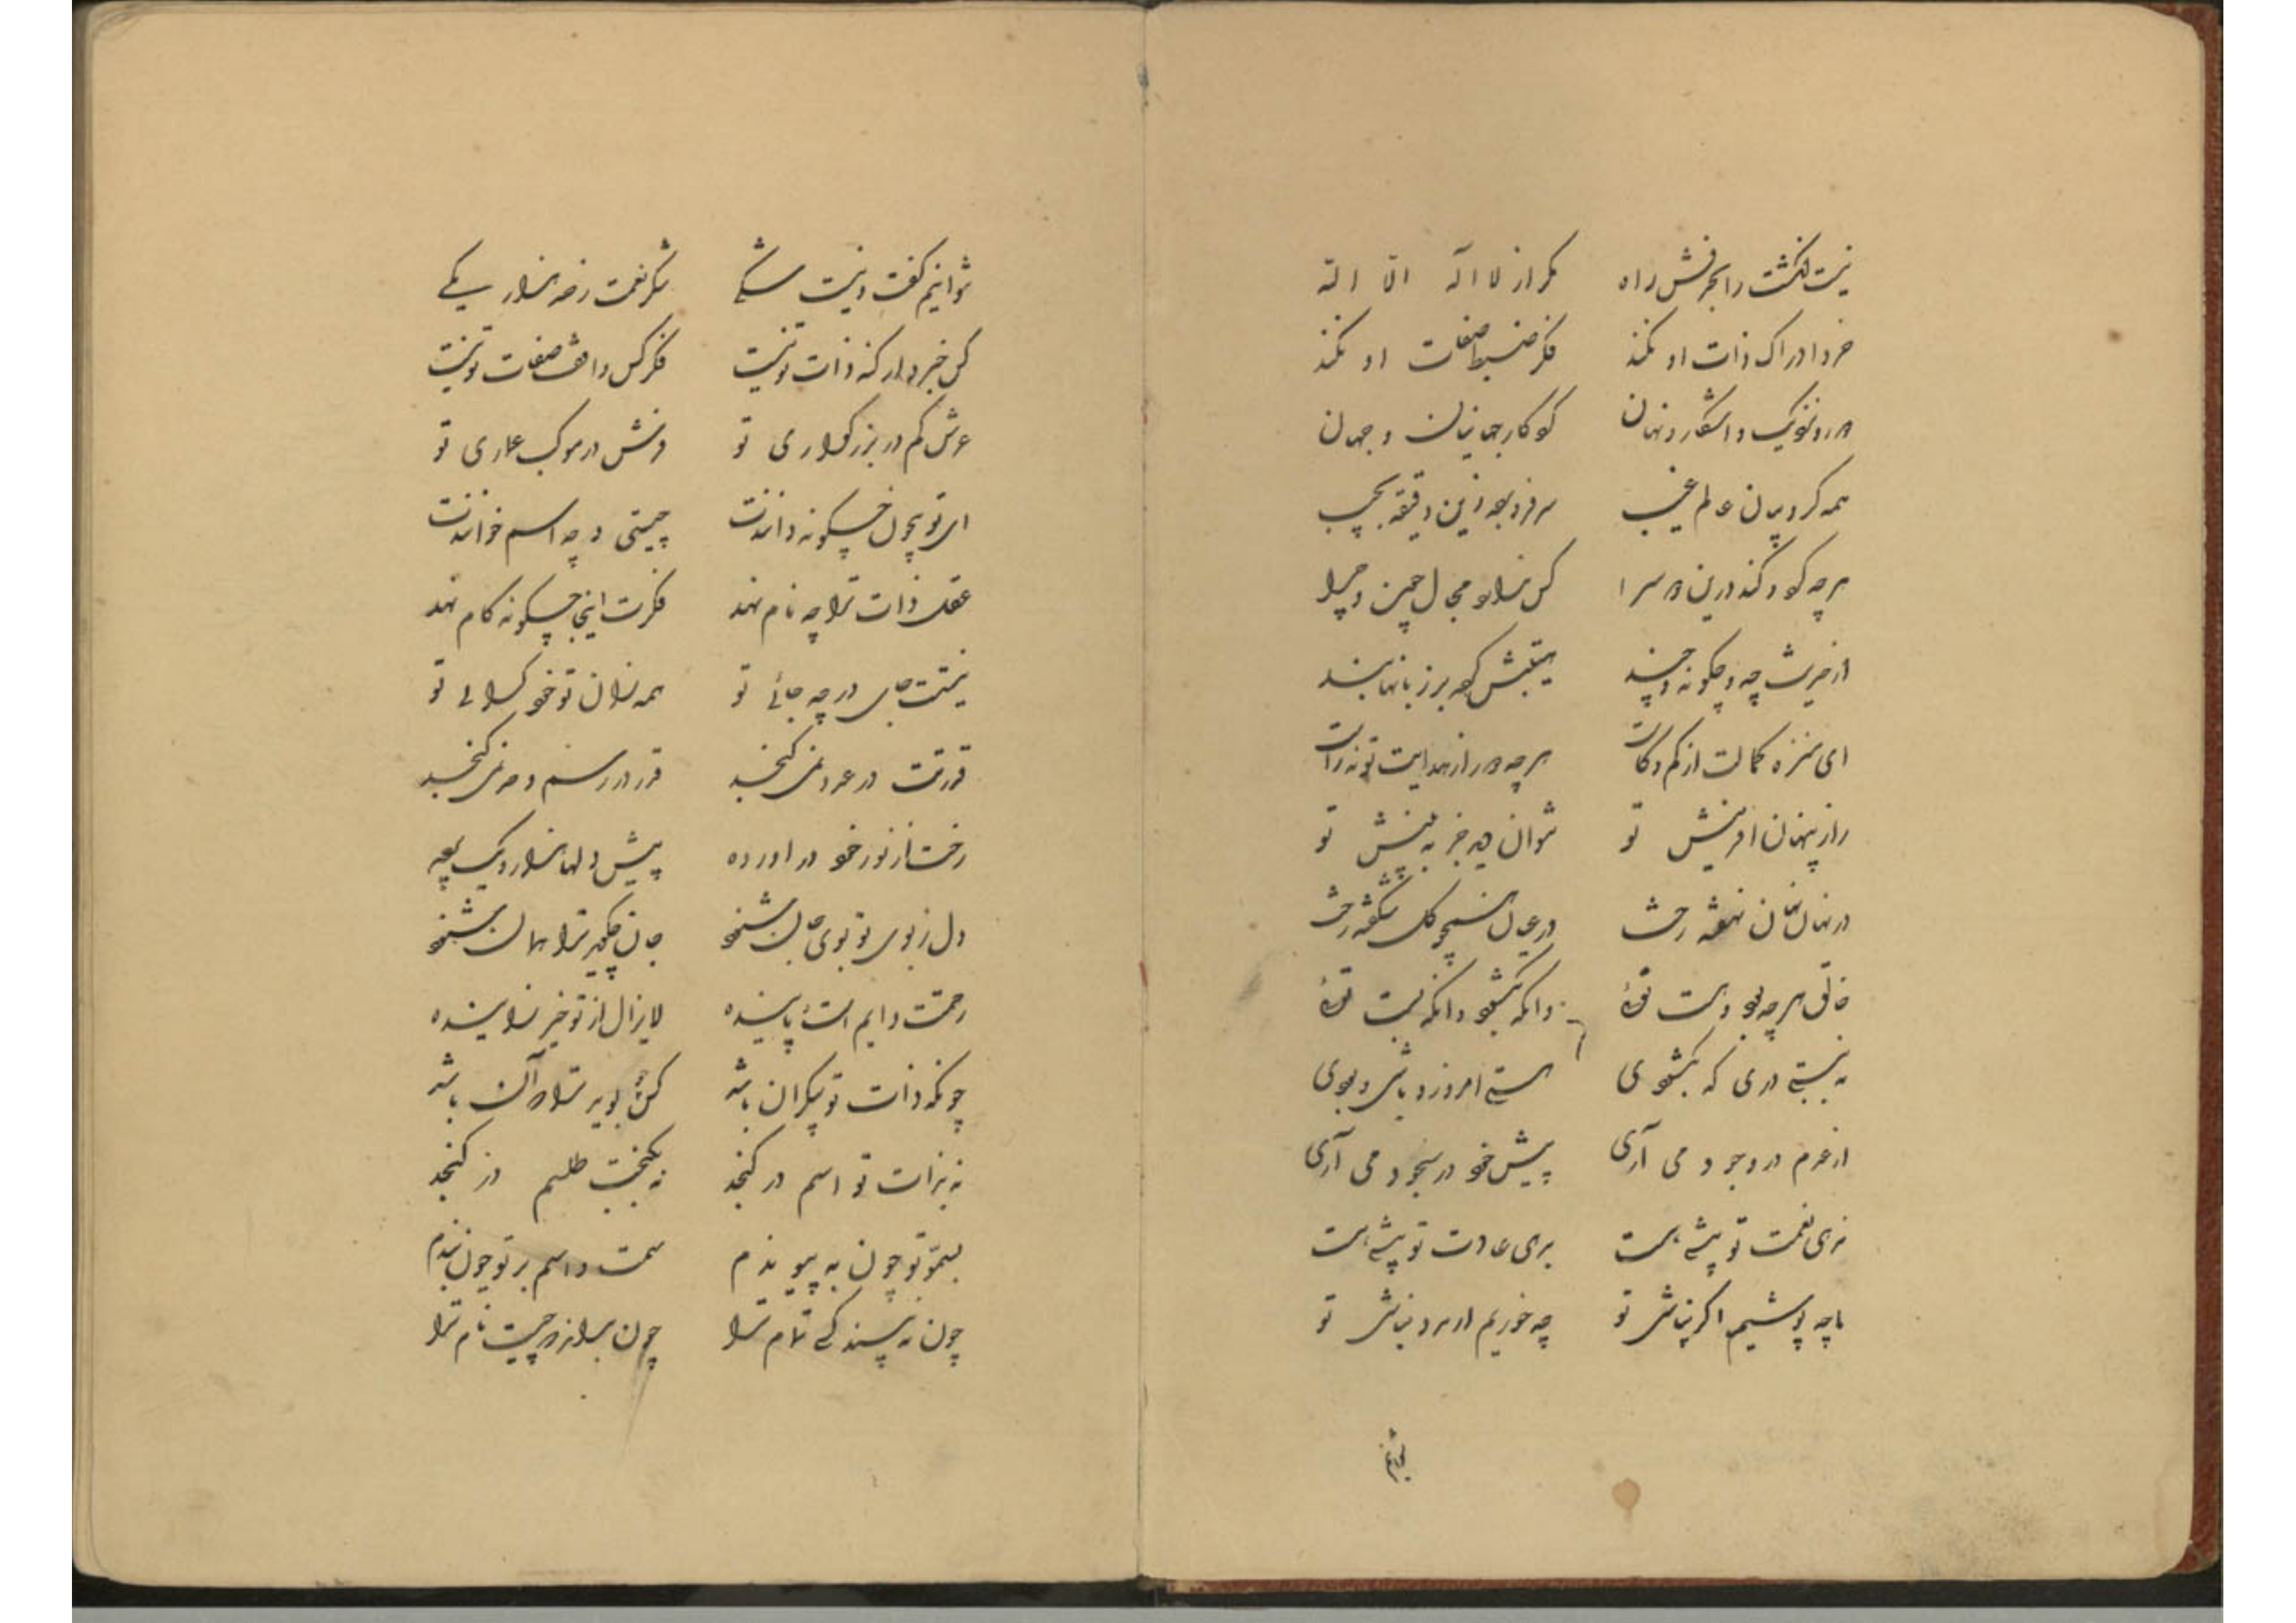 نیست انگشت را بحرفش راه مکر از لا اله الا الله
خرد ادراک ذات او نکند فکر ضبط صفات او نکند
دور و نزدیک و اشکار و نهان کو کار جهانیان و جهان
همه کروبیان عالم غیب سر فرو برده زین دقیقه بجیب
هر چه کو دکند درین دو سرا کس ندارد مجال چون و چرا
از خریش چه و چکونه و چند هیبتش کرده بر زبانها بند
ای منزه کمالت از کم و کاست هر چه دور از هدایت تو نه راست
راز پنهان افرینش تو نتوان دید جز به بینش تو
در نهان نهان نهفته رخت در عیان همچو کل شکفته رخت
خالق هر چه بود و هست توئی وانکه بکشود وانکه بست توئی
نه ببستی دری که بکشودی هستی امروز و باشی و بودی
از عدم در وجود می آری پیش خود در سجود می آری
نعمت تو پیشه است بری عادت تو پیشه است
ما چه پوشیم اکر نپاشی تو چه خوریم ار مرد نباشی تو
نتوانیم
نتوانیم کفت و نیست شکی شکر نعمت ز صد هزار یکی
کس خبردار کنه ذات تو نیست فکر کس واقف صفات تو نیست
عرش کم در بزرکواری تو فرش در موکب عماری تو
ای تو بیچون چکونه دانندت چیستی و چه اسم خوانندت
عقل ذات ترا چه نام نهد فکرت اینجا چکونه کام نهد
نیستت جای در چه جائی تو همه زان تو خود کرائی تو
قدرتت در عدد نمی کنجد قدر در رسم و حد نمی کنجد
رخت از نور خود در اورده پیش دلها هزار و یک پرده
دل ز بوی تو بوی جان شنود جان چکوید ترا همان شنود
رحمتت دایم است پاینده لایزال از تو خیر زاینده
چونکه ذات تو بیکران باشد کس چه کوید ترا که آن باشد
نه بذات تو اسم در کنجد نه بکنجت طلسم در کنجد
بسمو تو چون به پیوندم سمت و اسم بر تو چون بندم
چون نه پسندکی تمام ترا چون بدانم که چیست نام ترا